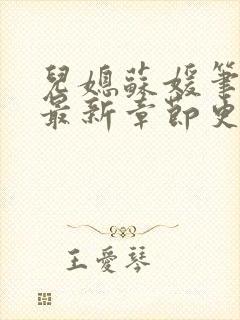 兒媳蘇媛筆
最新章節史
王愛琴